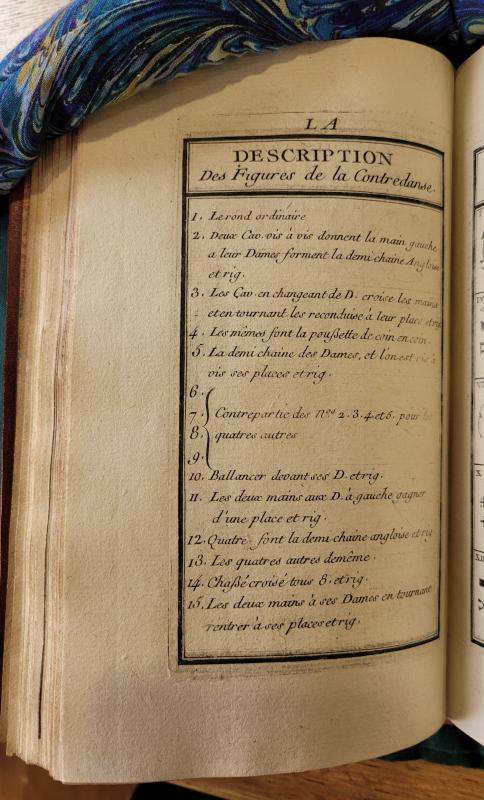 LA
DESCRIPTION
Des Figures de la Contredanse.
1. Le rond ordinaire
2. Deux Cav. vis à vis donnent la main gauche
a leur Dames forment la demi chaine Angloise
et rig.
3. Les Cav. en changeant de D. croise les mains
et en tournant les reconduise à leur place et rig
4. Les mêmes font la poußette de coin en coin.
5. La demi chaine des Dames, et l'on est vis à
vis ses places et rig.
6.
7. Contrepartie des Nos 2. 3. 4 et 5. pour les
8. quatres autres
9.
10. Ballancer devant ses D. et rig.
11. Les deux mains aux D. à gauche gagner
d'une place et rig.
12. Quatre font la demi chaine angloise et rig
13. Les quatres autres demême.
14. Chaßé croisé tous 8. et rig.
15. Les deux mains à ses Dames en tournant
rentrer à ses places et rig.